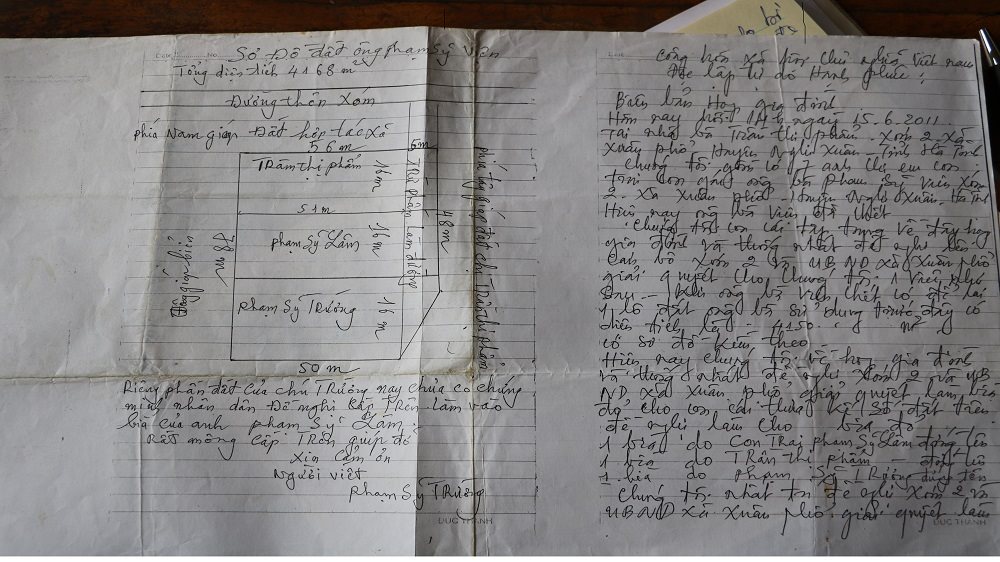 Sơ Đồ đất ông phạm Sỹ Viên
Tổng diện tích 4168 m²
Đường thôn xóm
phía Nam giáp Đất hợp tác xã
56 m
6m
Trần thị phấm
16m
51m
phạm Sỹ Lâm
16 m
phạm Sỹ Trường
16 m
50 m
48m
48m
giáp biển
phía tây giáp đất chị Trần thị phấm
Riêng phần đất của chú Trường nay chưa có chứng
minh nhân dân Đề nghị cấp Trên làm vào
bìa của anh phạm Sỹ Lâm.
Rất mong cấp Trên giúp đỡ
Xin cảm ơn
Người viết
phạm Sỹ Trường
ĐUC THANH
Cộng hòa xã hội chủ nghĩa Việt nam
Độc lập tự do Hạnh phúc
Biên bản Họp gia đình
Hôm nay hồi 14h ngày 15.6.2011
Tại nhà bà Trần thị phấm. Xóm 2 xã
Xuân phổ. Huyện Nghi Xuân. Tỉnh Hà Tĩnh
Chúng tôi gồm có 7 anh chị em con
ông bà phạm Sỹ Viên xóm
2. xã Xuân phổ. Huyện Nghi Xuân. Hà Tĩnh
Hiện nay ông bà Viên đã chết
Chúng tôi con cái tập trung về đây họp
gia đình và thống nhất đề nghị lên
Cán bộ xóm 2 và UBND xã Xuân phổ
giải quyết cho chúng tôi 1 việc như
sau. Khi ông bà Viên chết có để lại
1 lô đất ông bà sử dụng trước đây có
diện tích là 4150 m²
có sơ đồ kèm theo
Hiện nay chúng tôi về họp gia đình
và thống nhất đề nghị xóm 2 và UB
ND xã Xuân phổ giải quyết làm bìa
cho con cái thừa kế số đất trên
đề nghị làm cho bìa đỏ
1 bìa do con Trai phạm Sỹ Lâm đứng tên
1 bìa do Trần thị phấm đứng tên
1 bìa do phạm Sỹ Trường đứng tên
Chúng tôi nhất trí đề nghị xóm 2 và
UBND xã Xuân phổ giải quyết làm
ĐUC THANH